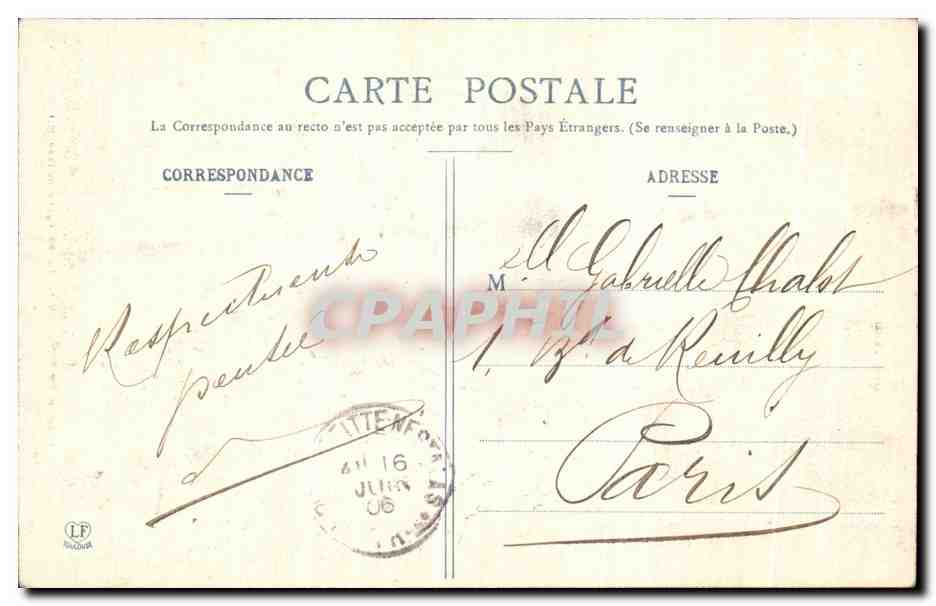 CARTE POSTALE
La Correspondance au recto n'est pas acceptée par tous les Pays Étrangers. (Se renseigner à la Poste.)
CORRESPONDANCE
Respectueuse
pensée
ADRESSE
Mell Gabrielle Chalot
1, Bd de Reuilly
Paris
16
JUIN
06
LF
TOULOUSE
CPAPHIL